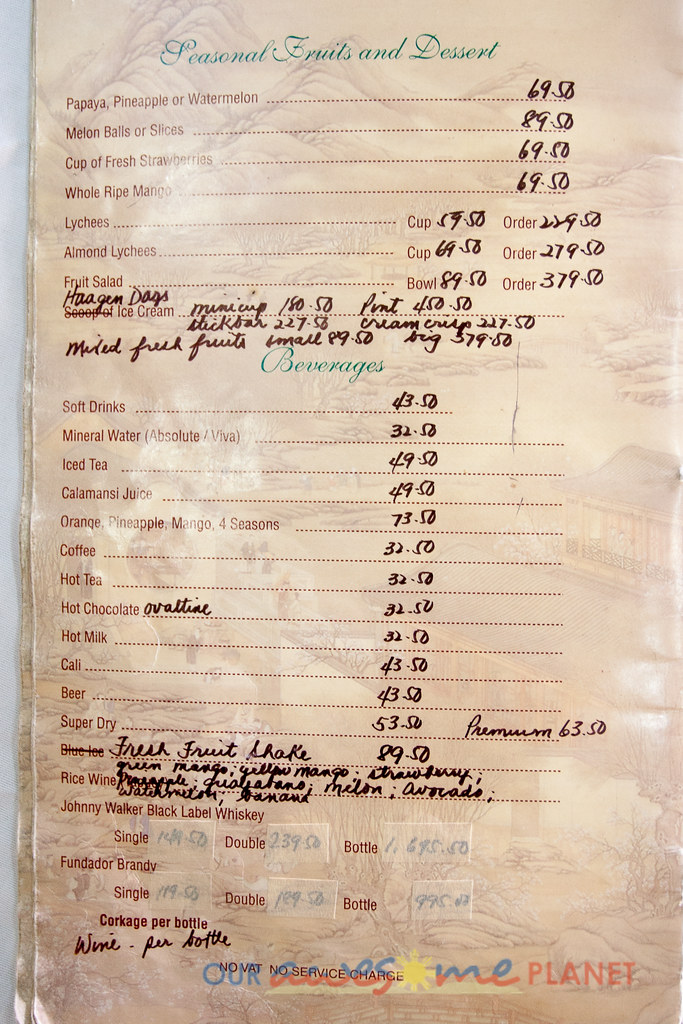 Seasonal Fruits and Dessert
Papaya, Pineapple or Watermelon 69.50
Melon Balls or Slices 89.50
Cup of Fresh Strawberries 69.50
Whole Ripe Mango 69.50
Lychees Cup 59.50 Order 229.50
Almond Lychees Cup 69.50 Order 279.50
Fruit Salad Bowl 89.50 Order 379.50
Haagen Dazs
Scoop of Ice Cream minicup 180.50 Pint 450.50
stickbar 227.50 cream crisp 227.50
Mixed fresh fruits small 89.50 big 379.50
Beverages
Soft Drinks 43.50
Mineral Water (Absolute / Viva) 32.50
Iced Tea 49.50
Calamansi Juice 49.50
Orange, Pineapple, Mango, 4 Seasons 73.50
Coffee 32.50
Hot Tea 32.50
Hot Chocolate ovaltine 32.50
Hot Milk 32.50
Cali 43.50
Beer 43.50
Super Dry 53.50 Premium 63.50
Blue Ice Fresh Fruit Shake 89.50
green mango, yellow mango, strawberry,
Rice Wine Pineapple, guabano, melon, avocado,
watermelon, banana
Johnny Walker Black Label Whiskey
Single Double 239.50 Bottle 1,695.50
Fundador Brandy
Single 119.50 Double 189.50 Bottle 995.00
Corkage per bottle
Wine - per bottle
NO VAT NO SERVICE CHARGE
OUR awesome PLANET